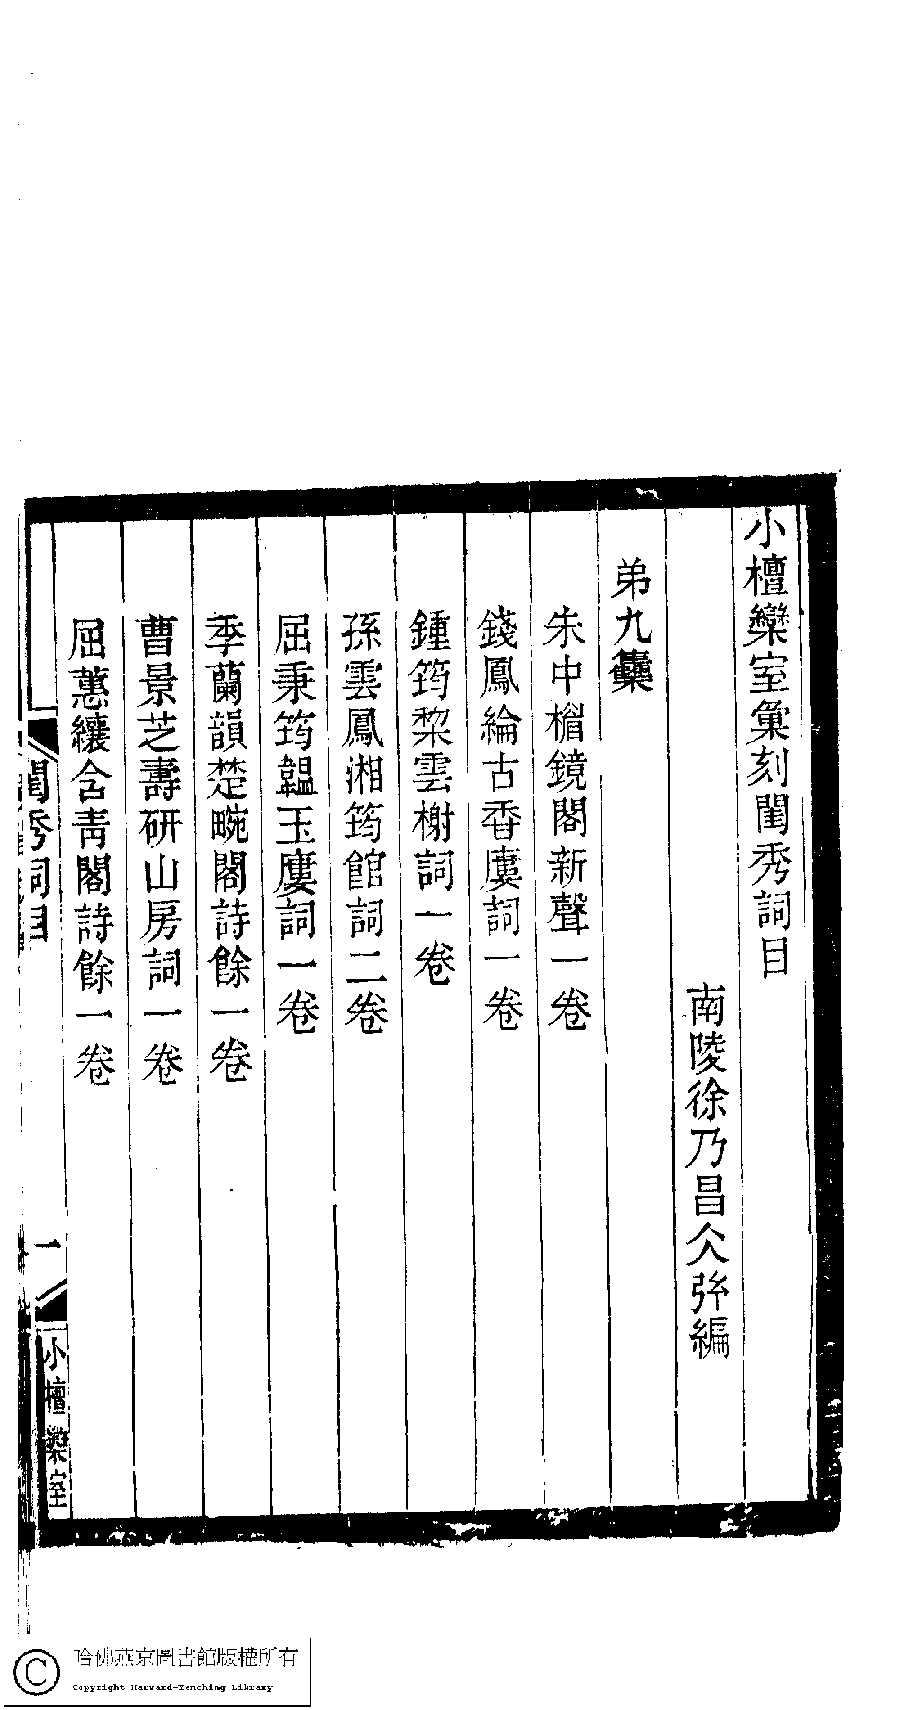 小檀欒室彙刻閨秀詞目
南陵徐乃昌仌弨編
弟九集
朱中楣鏡閣新聲一卷
錢鳳綸古香廔詞一卷
鍾筠棃雲榭詞一卷
孫雲鳳湘筠館詞二卷
屈秉筠韞玉廔詞一卷
季蘭韻楚畹閣詩餘一卷
曹景芝壽研山房詞一卷
屈蕙纕含青閣詩餘一卷
閨秀詞目
一
小檀欒室
哈佛燕京圖書館版權所有
Copyright Harvard-Yenching Library